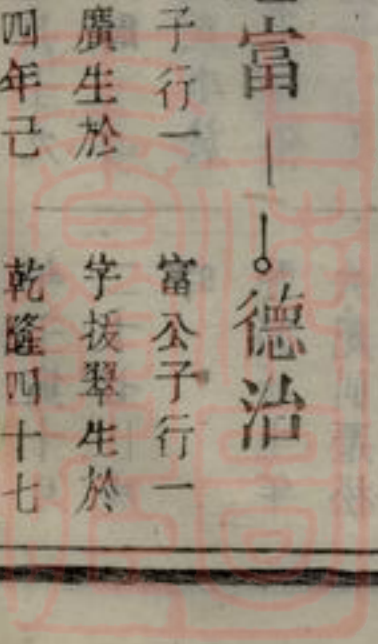 富
子行一
廣生於
四年己
德治
富公子行一
字拔翠生於
乾隆四十七